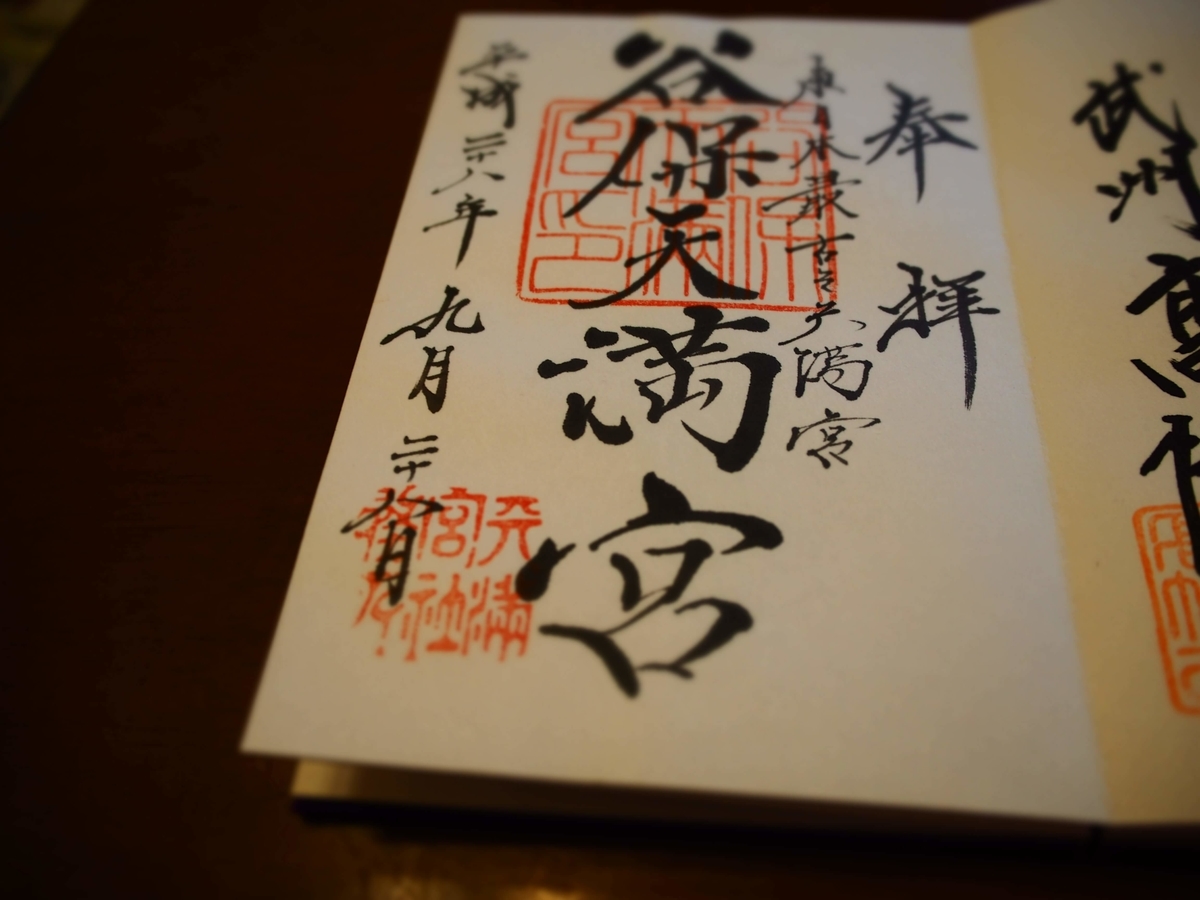 武州
奉拝
東日本最古之天満宮
谷保天満宮
谷保天満宮印
平成二十八年九月二十八日
天満宮社務所